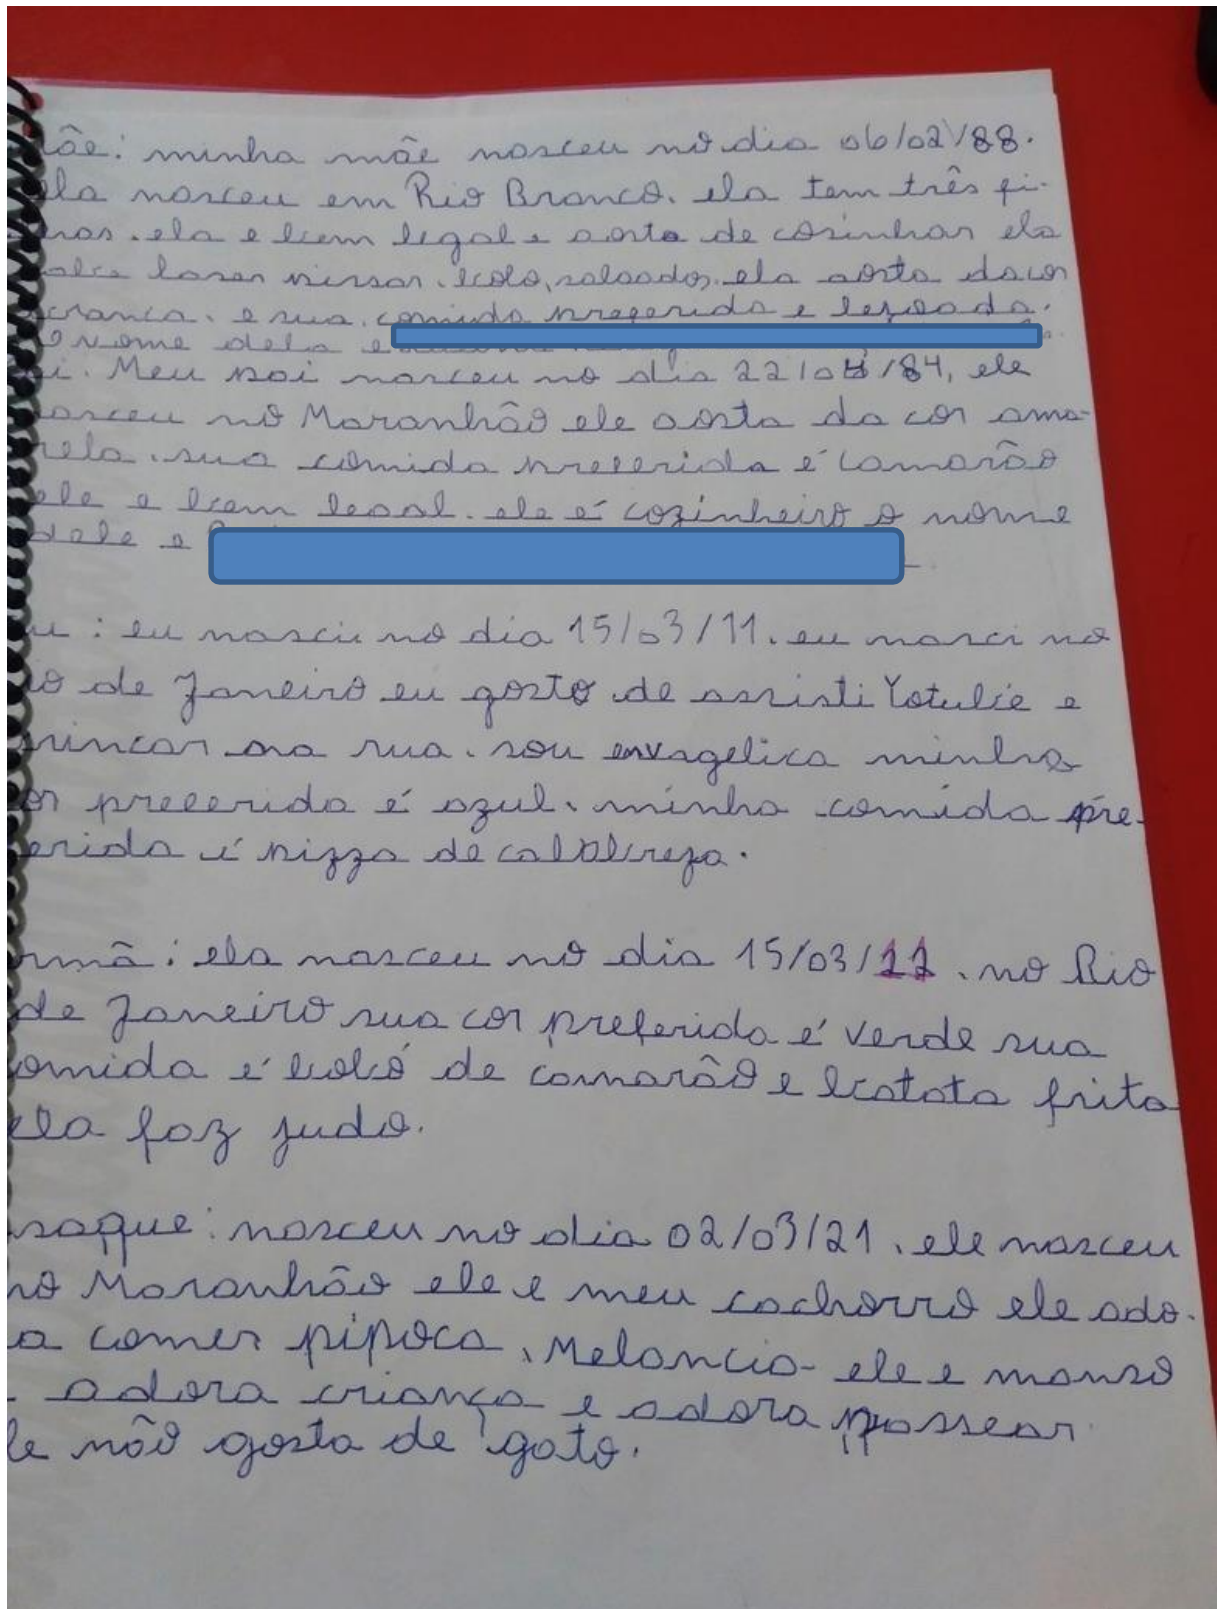 ãe: minha mãe nasceu no dia 06/02/88.
ela nasceu em Rio Branco. ela tem três fi-
has. ela e bem legal e gosta de cosinhar ela
sabe faser pissa, bolo, salgados. ela gosta da cor
branca. e sua comida preferida e feijoada.
O nome dela e
ai. Meu pai nasceu no dia 22/08/84, ele
nasceu no Maranhão ele gosta da cor ama-
rela. sua comida preferida é camarão
ele e bem legal. ele é cozinheiro o nome
dele e
eu: eu nasci no dia 15/03/11. eu nasci no
io de Janeiro eu gosto de assisti Yotube e
brincar na rua. sou envagelica minha
or preferida é azul. minha comida pre-
ferida é pizza de calabreza.
rmã: ela nasceu no dia 15/03/11. no Rio
de Janeiro sua cor preferida é verde sua
omida é bobó de camarão e batata frita
ela faz judo.
nasceu no dia 02/03/21. ele nasceu
no Maranhão ele e meu cachorro ele ado-
a comer pipoca, Melancia ele e manso
adora criança e adora passear
le não gosta de gato.